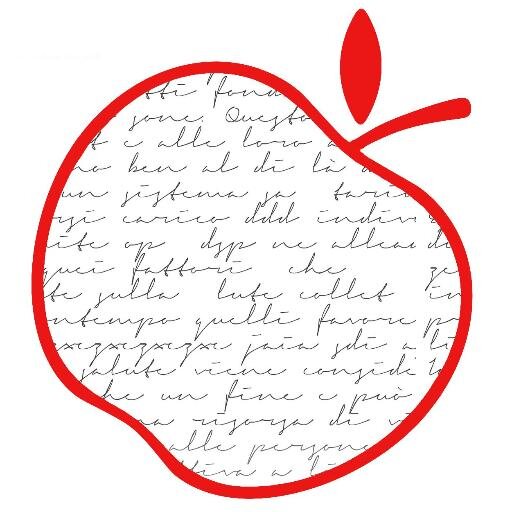 tti fond
sone. Questo
e alle loro a
no ben al di là a
un sistema sa tari
rsi carico ddd indivi
ite op dsp ne alleau du
quei fattori che ze
te sulla lute collet in
ntempo quelli favore po
xxzxxzxxzxx jaia sdi a li
salute viene conside
he un fine e può
na risorsa di v
alle persone
tiva a li